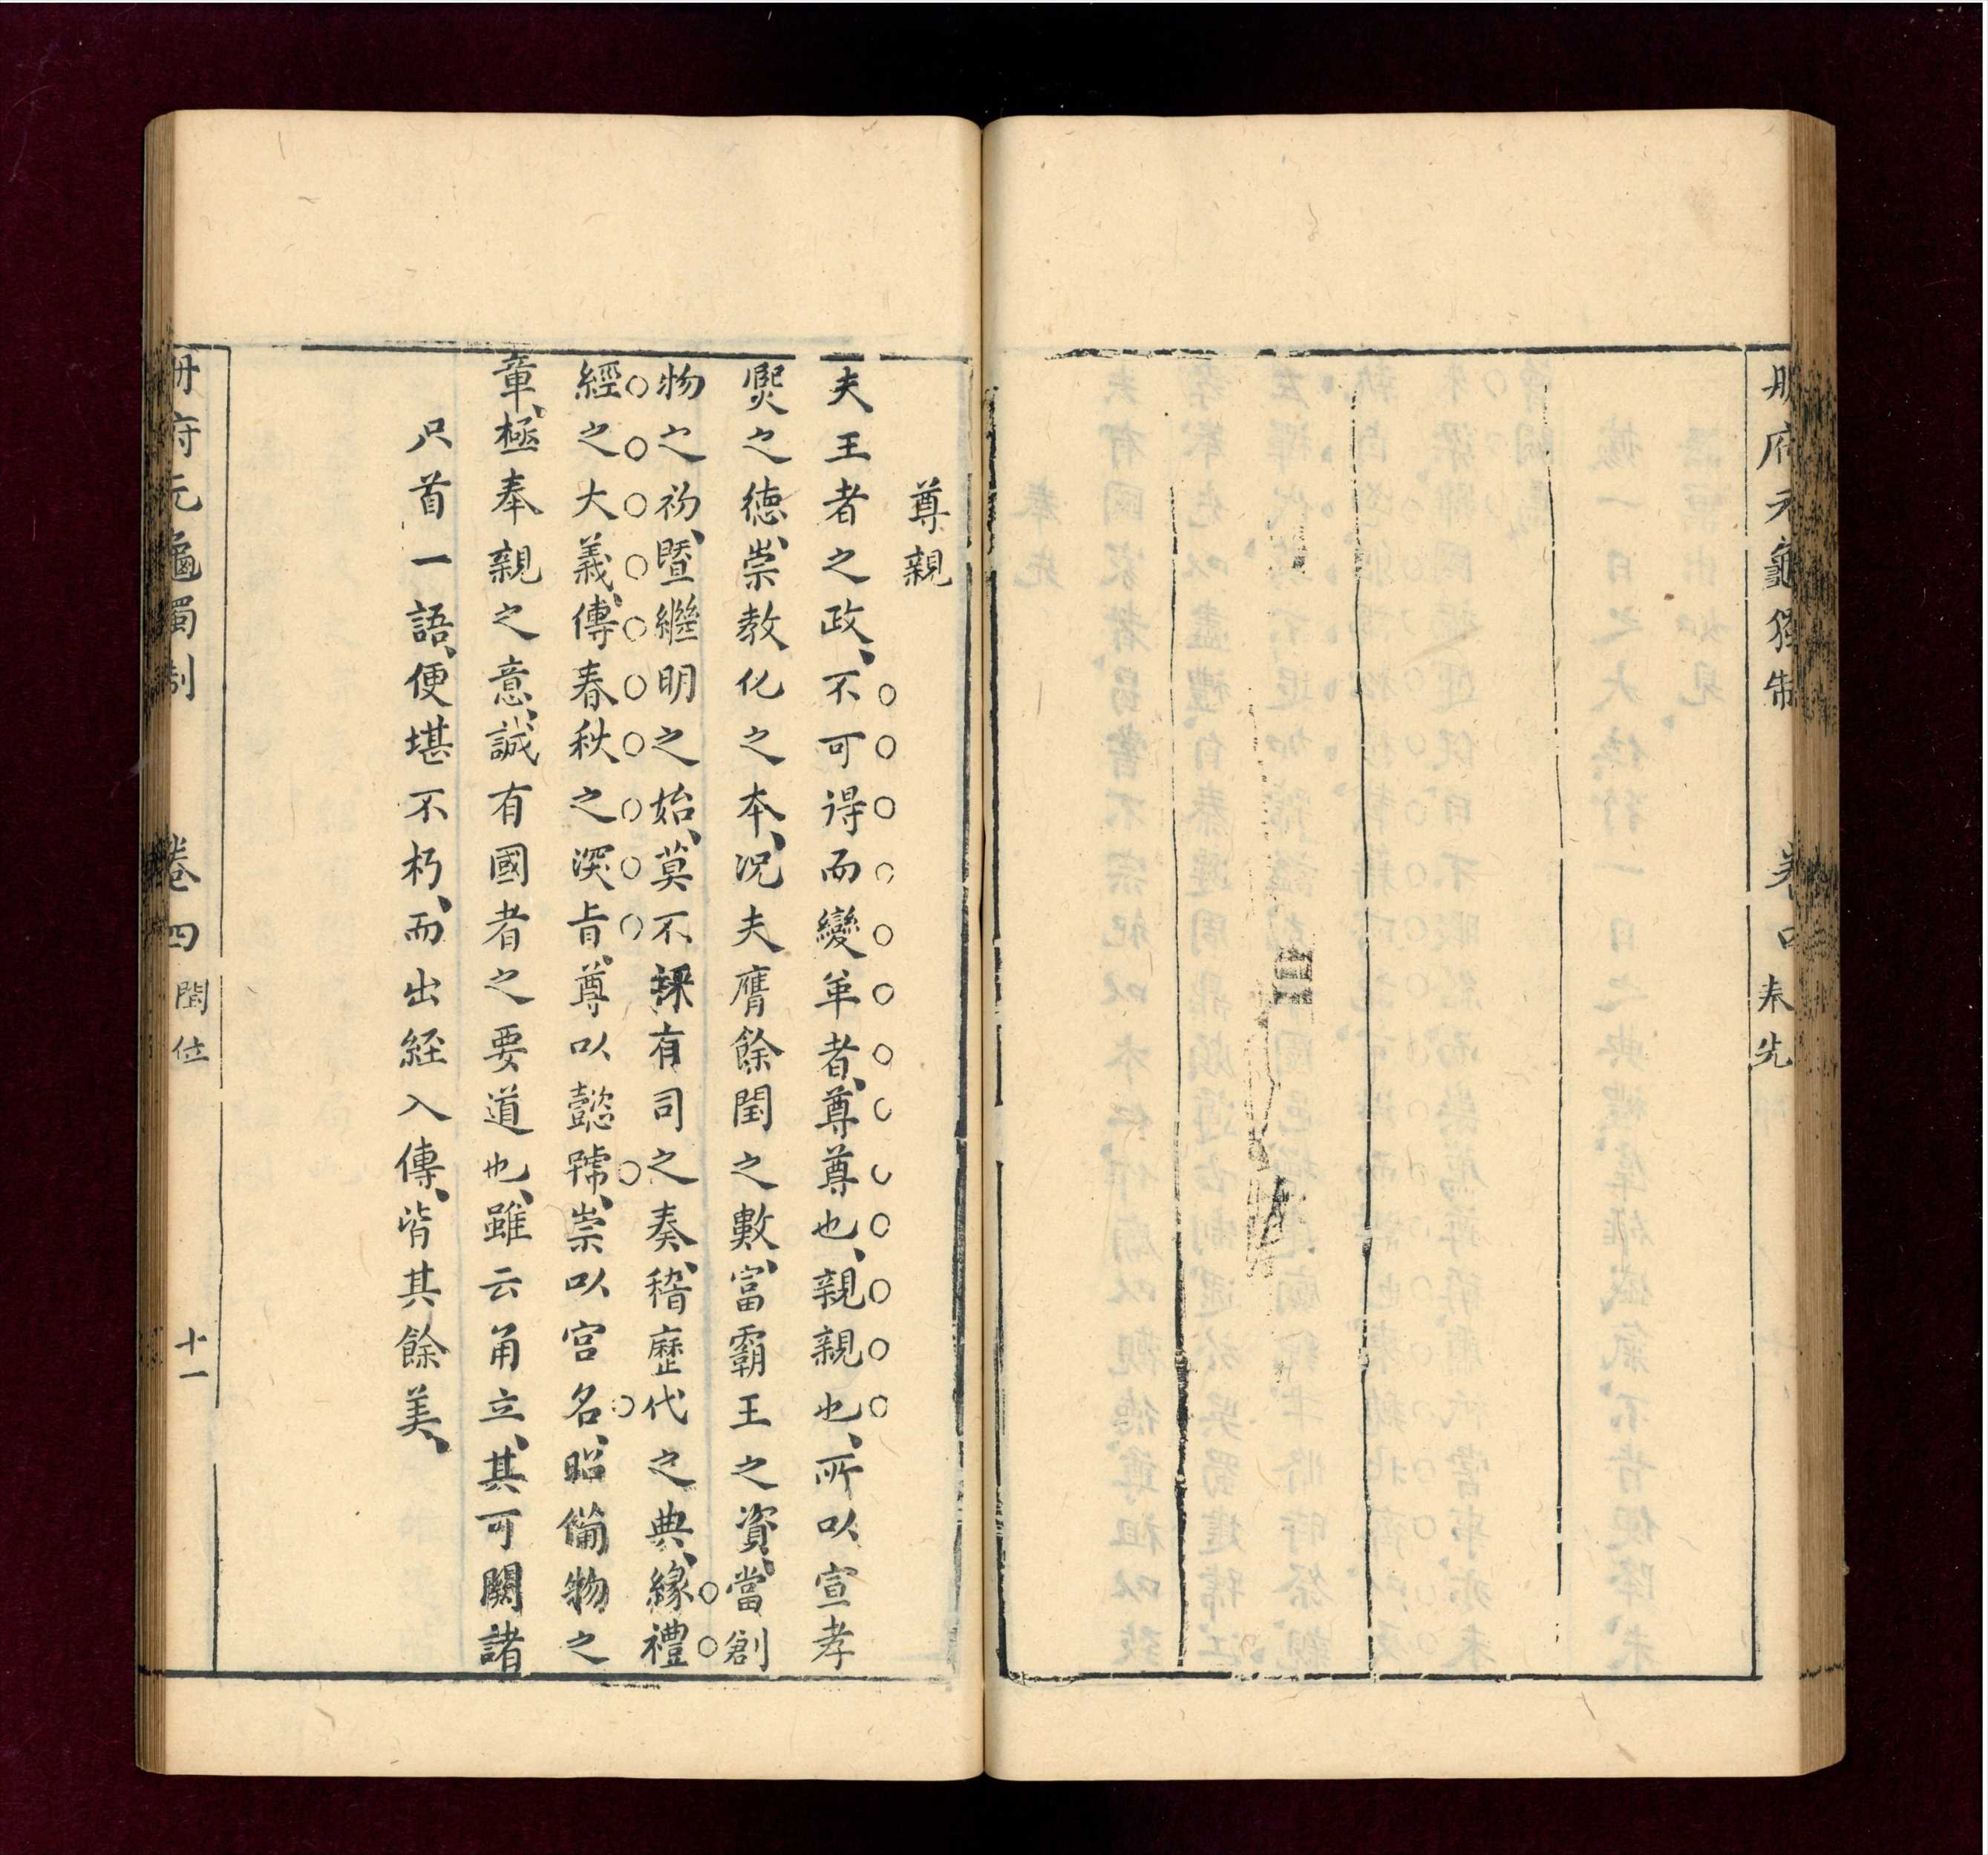 册府元龜獨制 卷四 奉先
尊親
夫王者之政、不可得而變革者、尊尊也、親親也、所以宣孝
熙之德、崇教化之本、況夫膺餘閏之數、富霸王之資、當創
物之初、暨繼明之始、莫不採有司之奏、稽歷代之典、緣禮
經之大義、傳春秋之深旨、尊以懿號、崇以宫名、昭備物之
章、極奉親之意、誠有國者之要道也、雖云角立、其可闕諸
只首一語、便堪不朽、而出経入傳、皆其餘美、
册府元龜獨制 卷四 閏位 十一